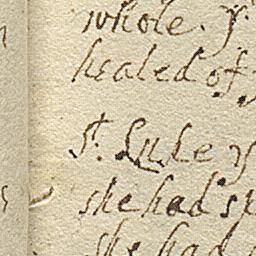 whole. y
healed of
St. Luke y
she had s
she had